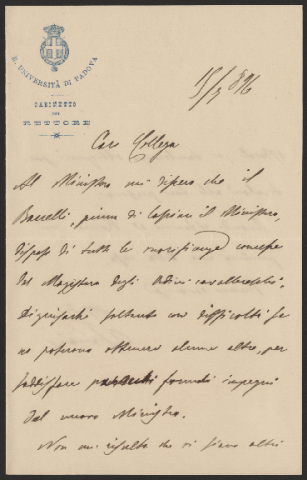 R. UNIVERSITÀ DI PADOVA
GABINETTO
DEL
RETTORE
15/3 896
Caro Collega
Al Ministero mi dissero che il
Baccelli, prima di lasciare il Ministero,
dispose di tutte le onorificenze concesse
dal Magistero degli Ordini cavallereschi.
Sicché soltanto con difficoltà se
ne potranno ottenere alcune altre, per
soddisfare formali impegni
dal nuovo Ministro.
Non mi risulta che vi siano altri